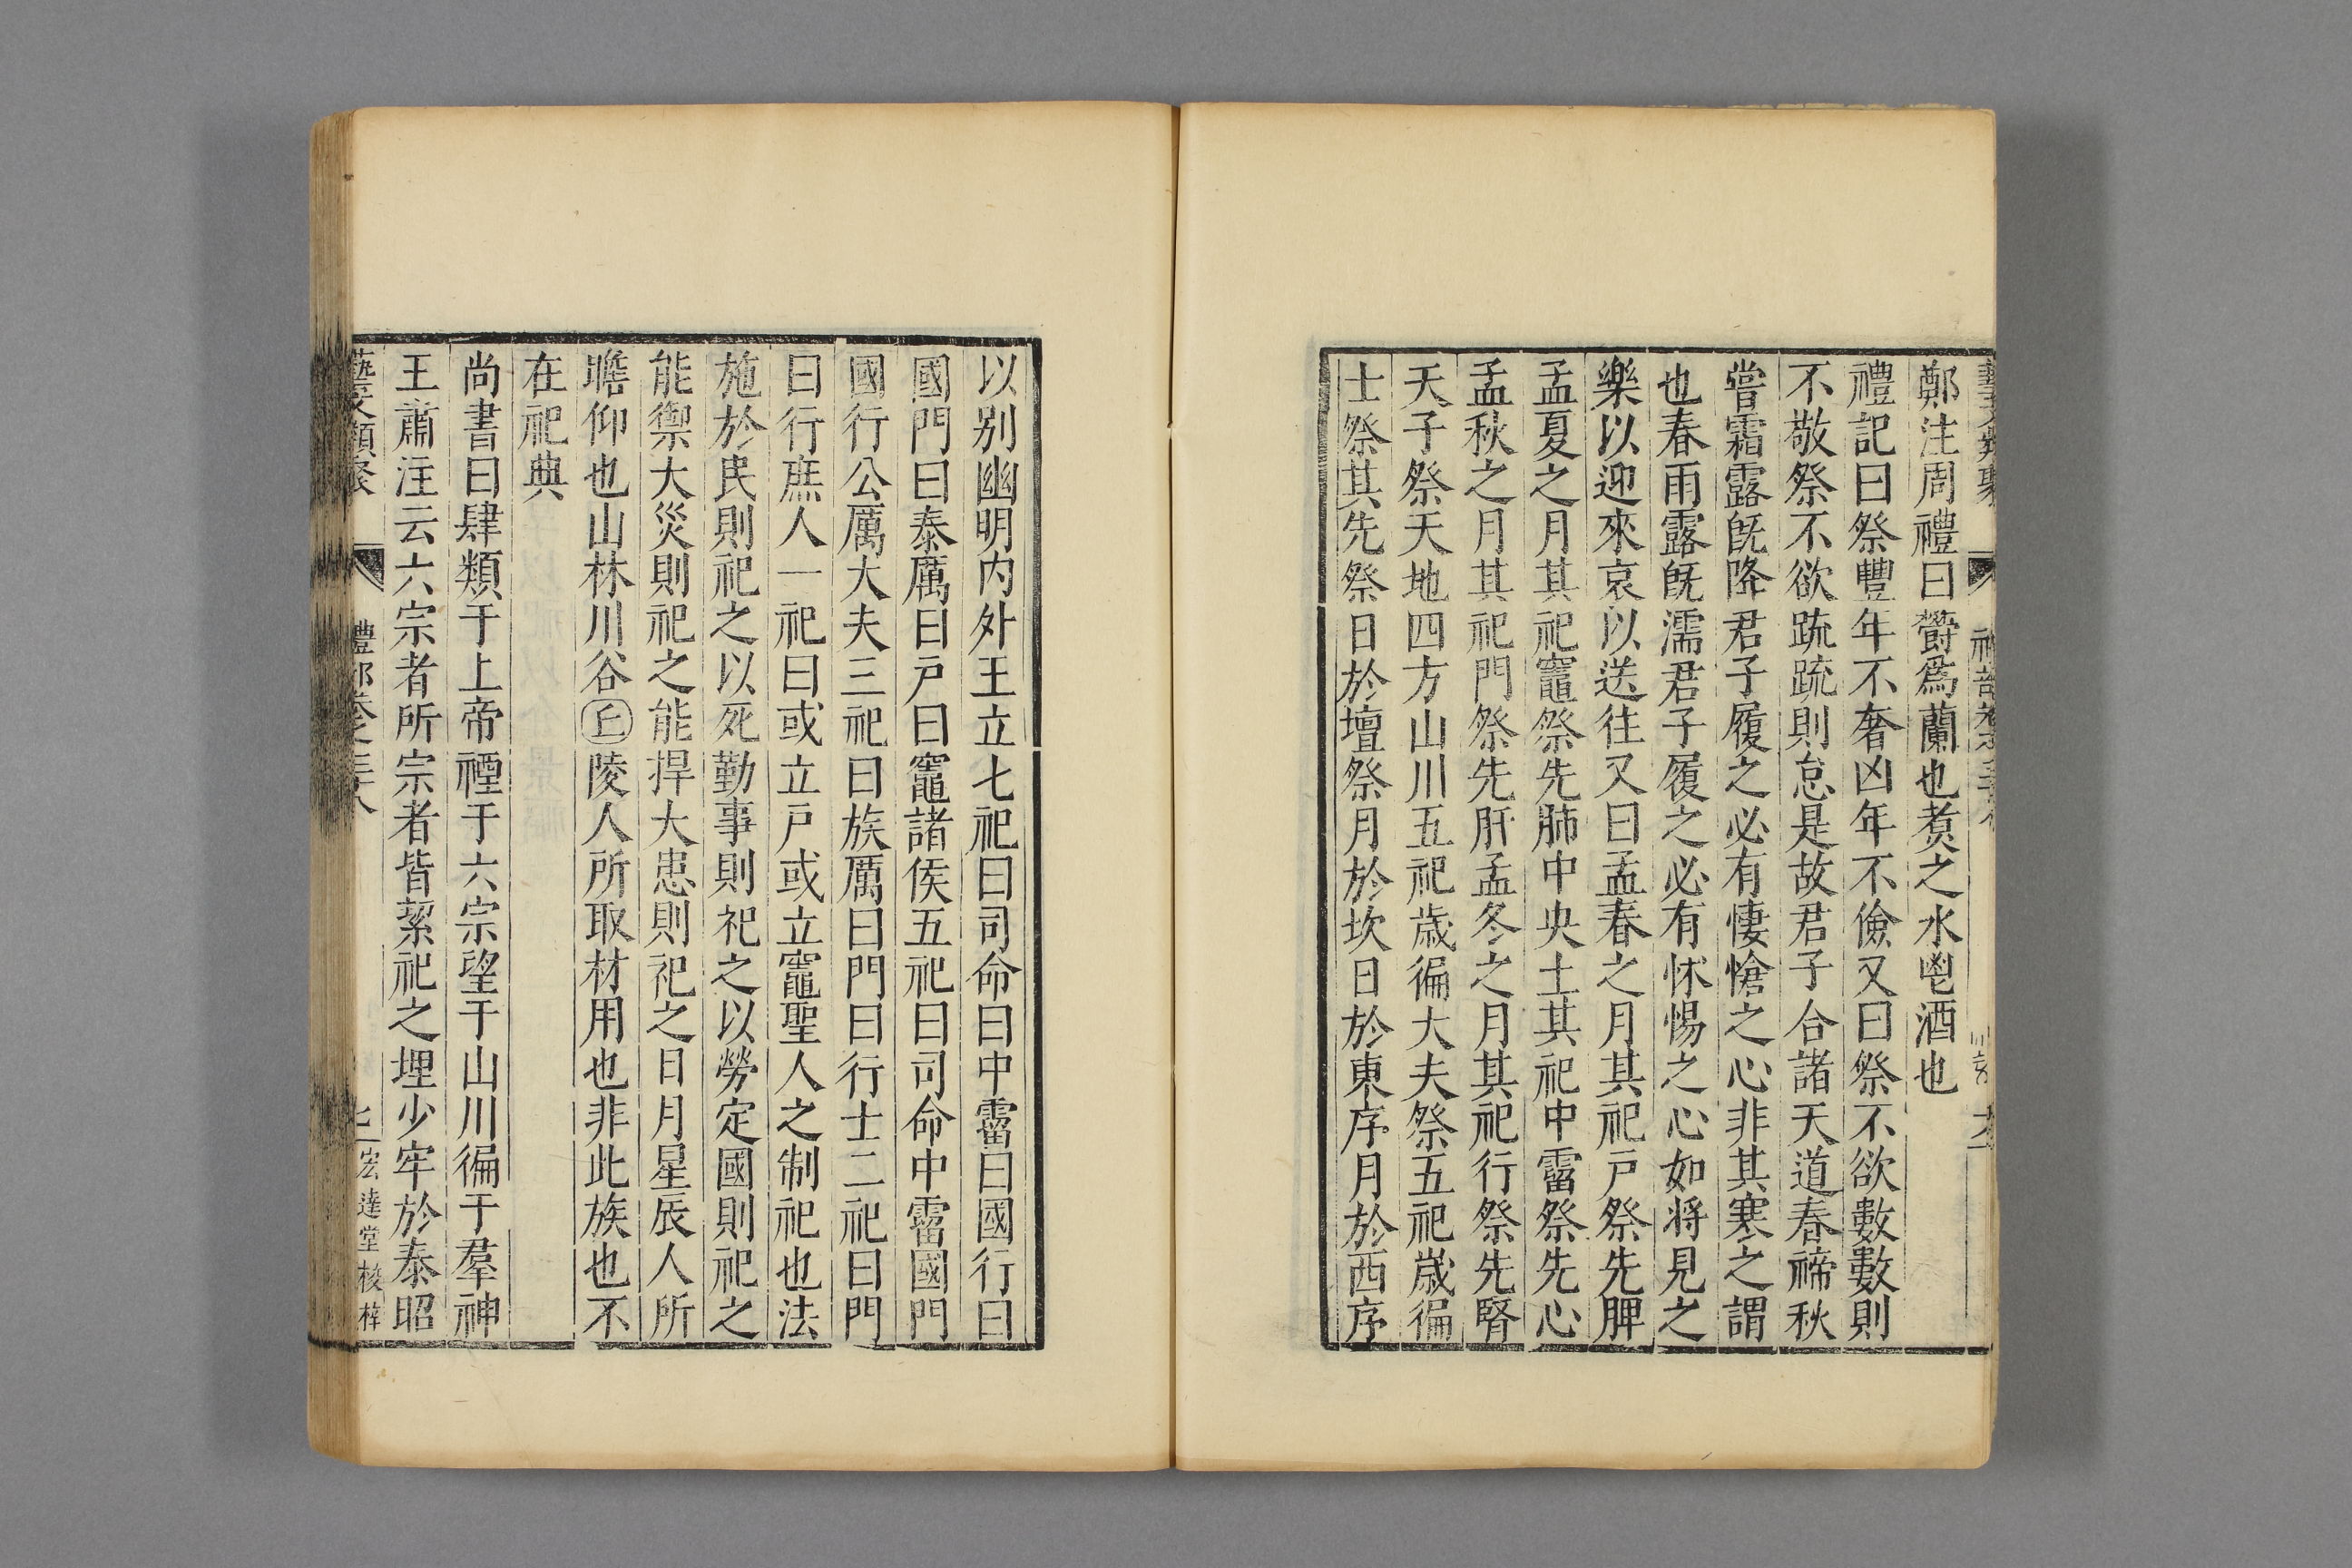 鄭注周禮曰欎爲蘭也煑之水鬯酒也
禮記曰祭豐年不奢凶年不儉又曰祭不欲數數則
不敬祭不欲疏疏則怠是故君子合諸天道春禘秋
嘗霜露旣降君子履之必有悽愴之心非其寒之謂
也春雨露旣濡君子履之必有怵惕之心如將見之
樂以迎來哀以送往又曰孟春之月其祀戸祭先脾
孟夏之月其祀竈祭先肺中央土其祀中霤祭先心
孟秋之月其祀門祭先肝孟冬之月其祀行祭先腎
天子祭天地四方山川五祀歳徧大夫祭五祀歳徧
士祭其先祭日於壇祭月於坎日於東序月於西序
以别幽明内外王立七祀曰司命曰中霤曰國行曰
國門曰泰厲曰戸曰竈諸侯五祀曰司命中霤國門
國行公厲大夫三祀曰族厲曰門曰行士二祀曰門
曰行庶人一祀曰或立戸或立竈聖人之制祀也法
施於民則祀之以死勤事則祀之以勞定國則祀之
能禦大災則祀之能捍大患則祀之日月星辰人所
瞻仰也山林川谷丘陵人所取材用也非此族也不
在祀典
尚書曰肆類于上帝禋于六宗望于山川徧于羣神
王肅注云六宗者所宗者皆絜祀之埋少牢於泰昭
藝文類聚 禮部卷之三十八 七 宏達堂校梓